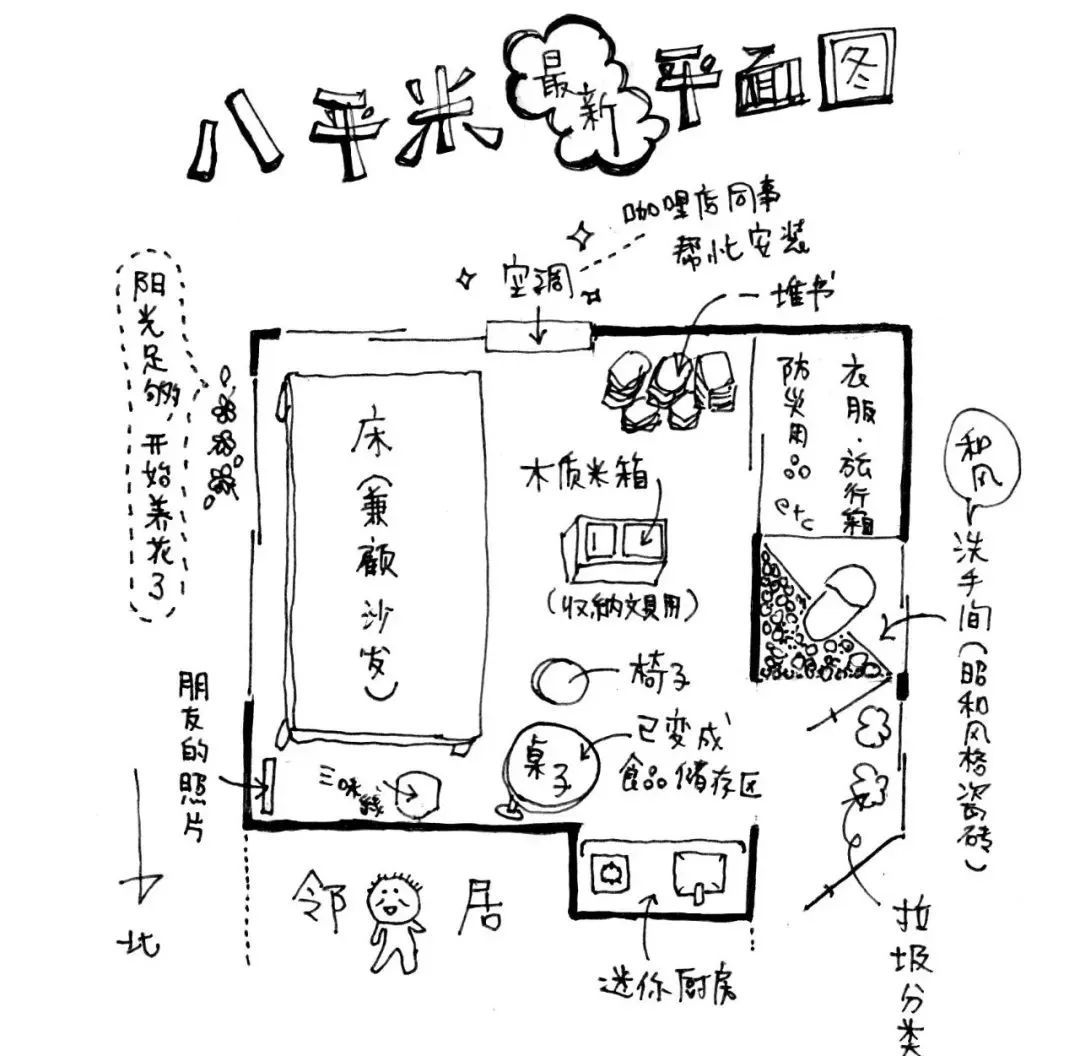 八平米最新平面图
咖哩店同事
帮忙安装
空调
一堆书
阳光足够，开始养花了
床（兼顾沙发）
衣服·旅行箱
防灾用品
etc
木质米箱
（收纳文具用）
和风
洗手间（昭和风格瓷砖）
椅子
桌子
已变成
食品储存区
朋友的照片
三味线
北
邻居
迷你厨房
垃圾分类